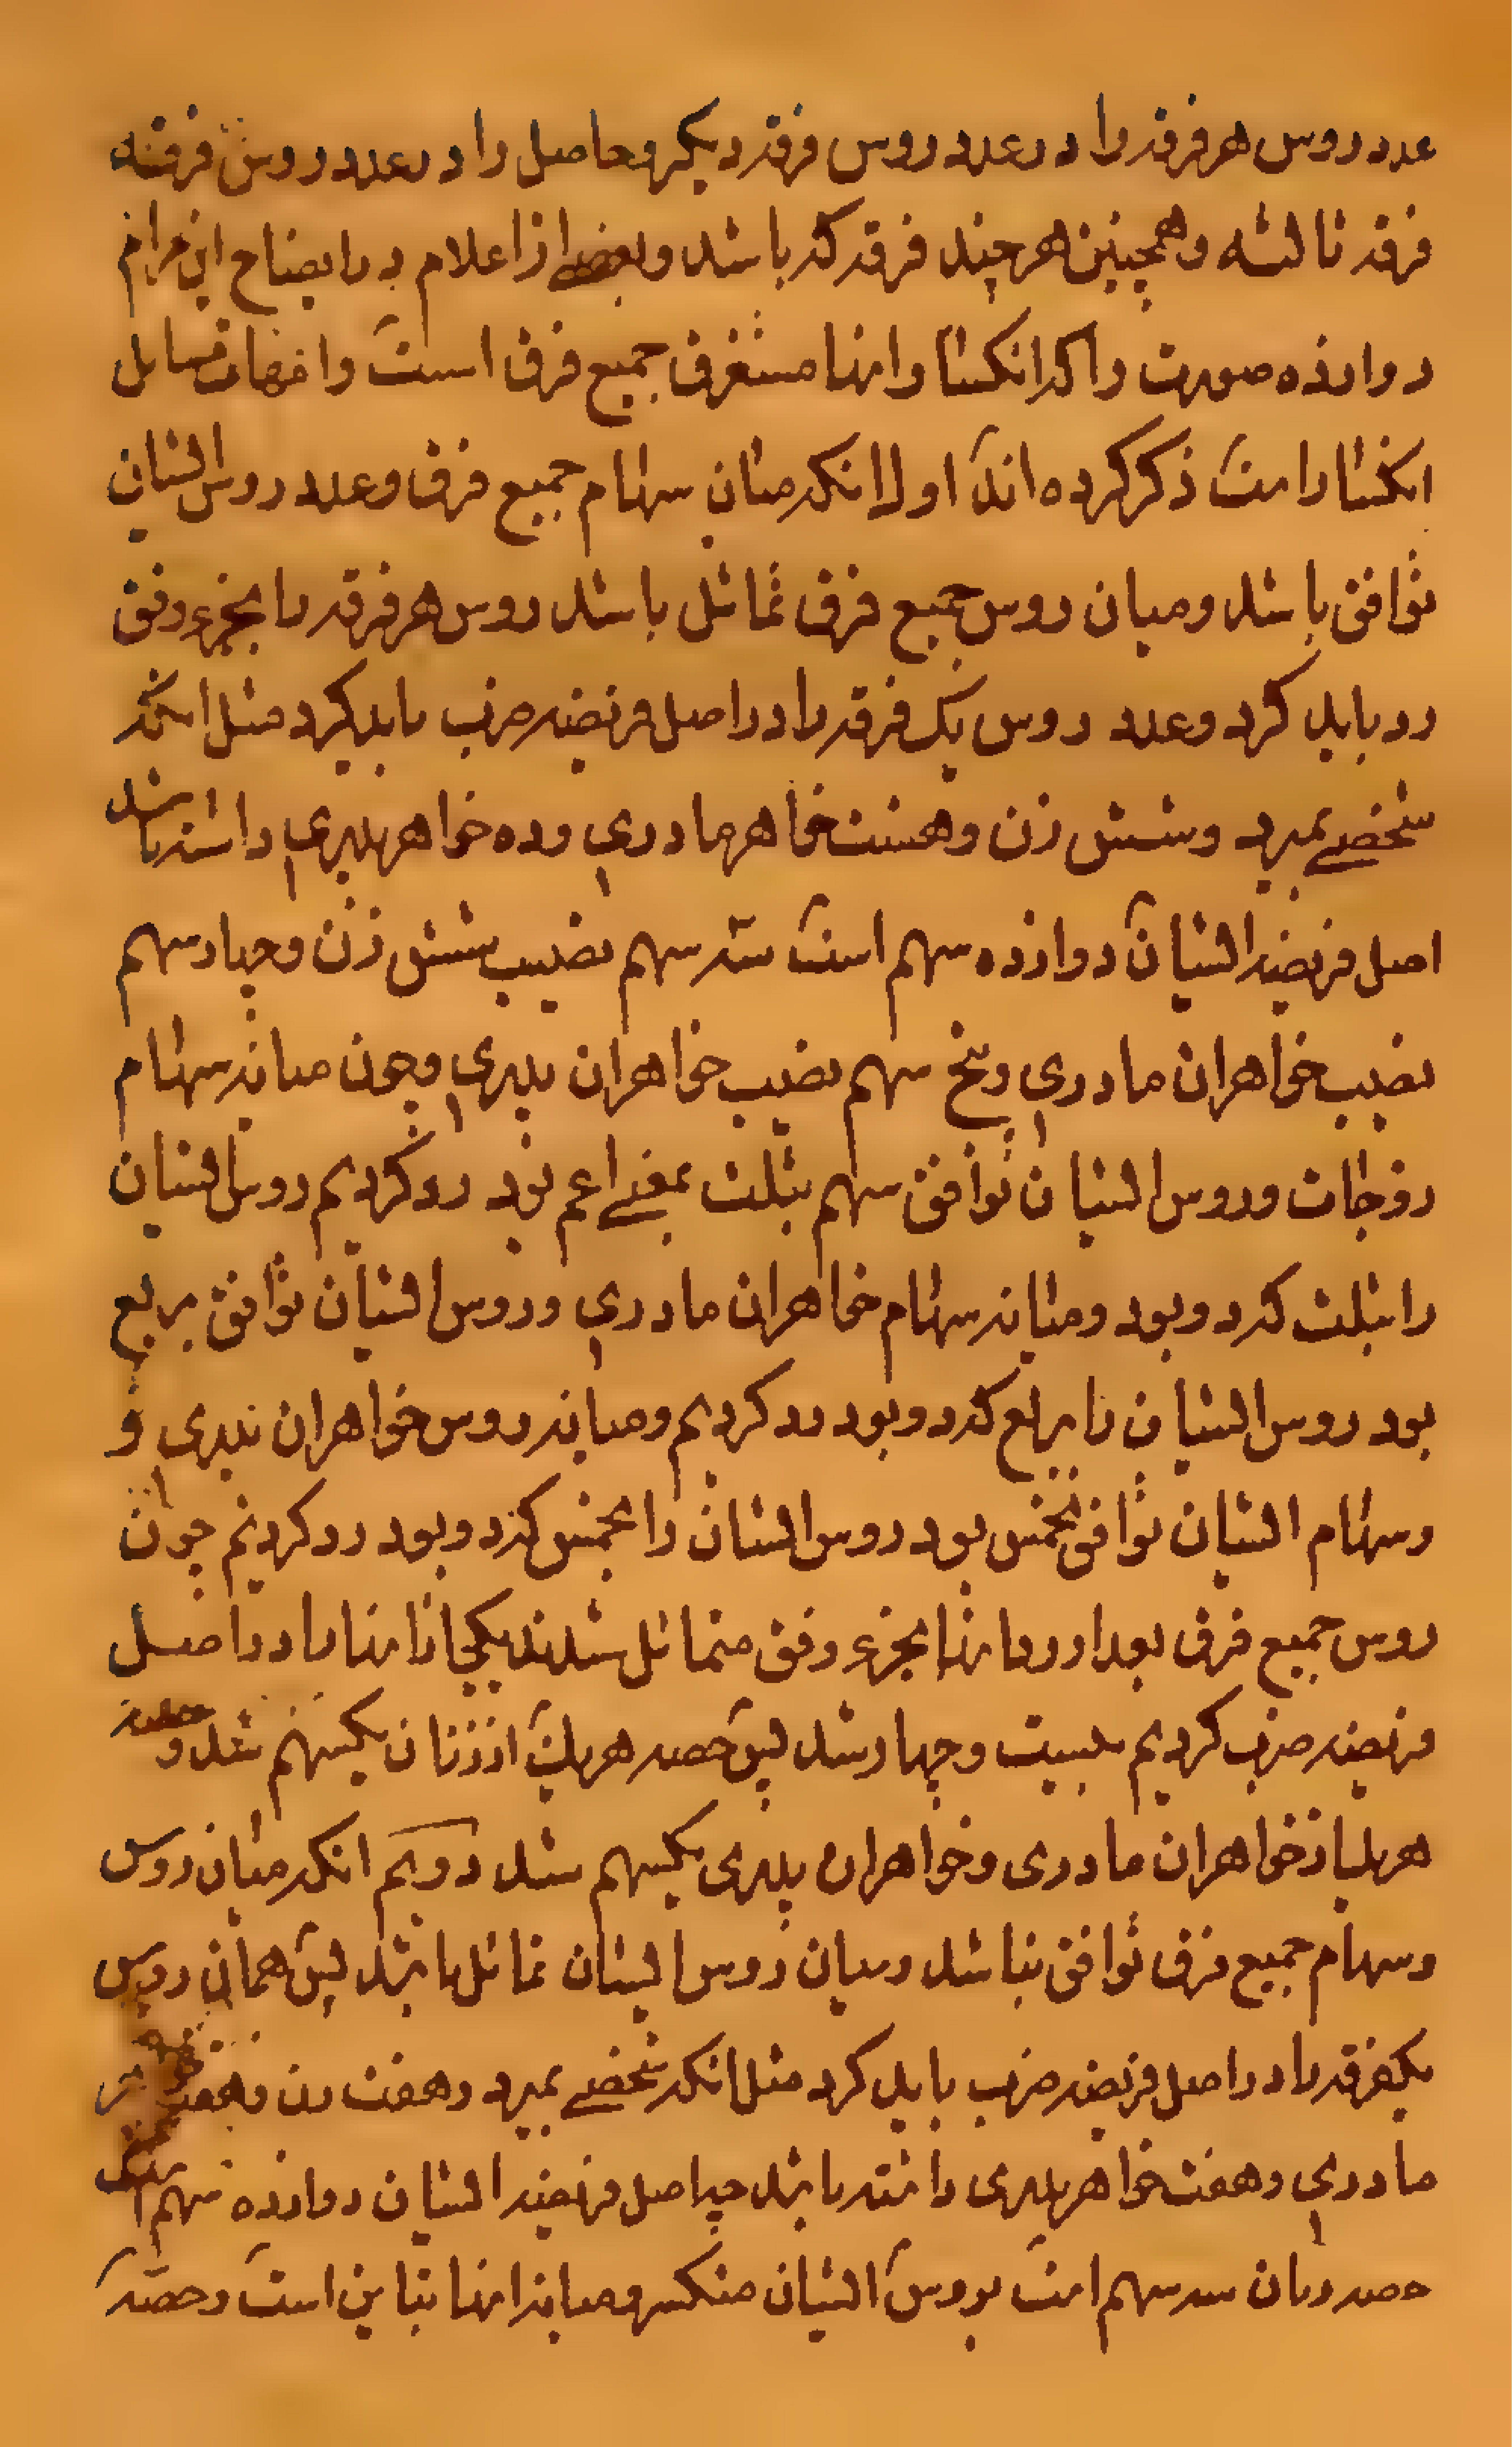 عدد روس هر فرقه را در عدد روس فرقه دیکر و حاصل را در عدد روس فرقنه
فرقه ثالثه و همچنین هر چند فرقه که باشد و بعضی از اعلام در ایضاح این مرام
دوازده صورت را که انکسار در انها مستغرق جمیع فرق است و امهات مسایل
انکسار است ذکر کرده اند اول انکه میان سهام جمیع فرق و عدد روس ایشان
توافق باشد و میان روس جمیع فرق تماثل باشد روس هر فرقه را بجزء وفق
رد باید کرد و عدد روس یک فرقه را در اصل فریضه ضرب باید کرد مثل انکه
شخصی بمیرد و شش زن و هشت خواهر مادری و ده خواهر پدری داشته باشد
اصل فریضه ایشان دوازده سهم است سه سهم نصیب شش زن و چهار سهم
نصیب خواهران مادری و پنج سهم نصیب خواهران پدری و چون میانه سهام
زوجات و روس ایشان توافق سهم بثلث بمعنی اعم بود رد کردیم روس ایشان
را بثلث که دو بود و میانه سهام خواهران مادری و روس ایشان توافق بربع
بود روس ایشان را بربع که دو بود رد کردیم و میانه روس خواهران پدری و
و سهام ایشان توافق بخمس بود روس ایشان را بخمس که دو بود رد کردیم چون
روس جمیع فرق بعد از رد انها بجزء وفق متماثل شدند یکی از انها را در اصل
فریضه ضرب کردیم بیست و چهار شد پس حصه هر یک از زنان یکسهم شد و حصه
هر یک از خواهران مادری و خواهران پدری یکسهم شد دویم انکه میان روس
و سهام جمیع فرق توافق نباشد و میان روس ایشان تماثل باشد پس همان روس
یکفرقه را در اصل فریضه ضرب باید کرد مثل انکه شخصی بمیرد و هفت زن و هفت خواهر
مادری و هفت خواهر پدری داشته باشد چه اصل فریضه ایشان دوازده سهم است
حصه زنان سه سهم است بر روس ایشان منکسر و میانه انها تباین است و حصه